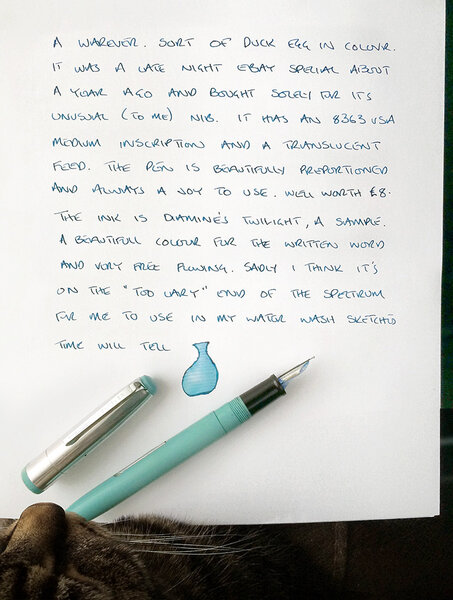 A WAREVER. SORT OF DUCK EGG IN COLOUR.
IT WAS A LATE NIGHT EBAY SPECIAL ABOUT
A YEAR AGO AND BOUGHT SOLELY FOR ITS
UNUSUAL (TO ME) NIB. IT HAS AN 8363 USA
MEDIUM INSCRIPTION AND A TRANSLUCENT
FEED. THE PEN IS BEAUTIFULLY PROPORTIONED
AND ALWAYS A JOY TO USE. WELL WORTH £8.
THE INK IS DIAMINE'S TWILIGHT, A SAMPLE.
A BEAUTIFUL COLOUR FOR THE WRITTEN WORD
AND VERY FREE FLOWING. SADLY I THINK IT'S
ON THE "TOO" END OF THE SPECTRUM
FOR ME TO USE IN MY WATER WASH
TIME WILL TELL